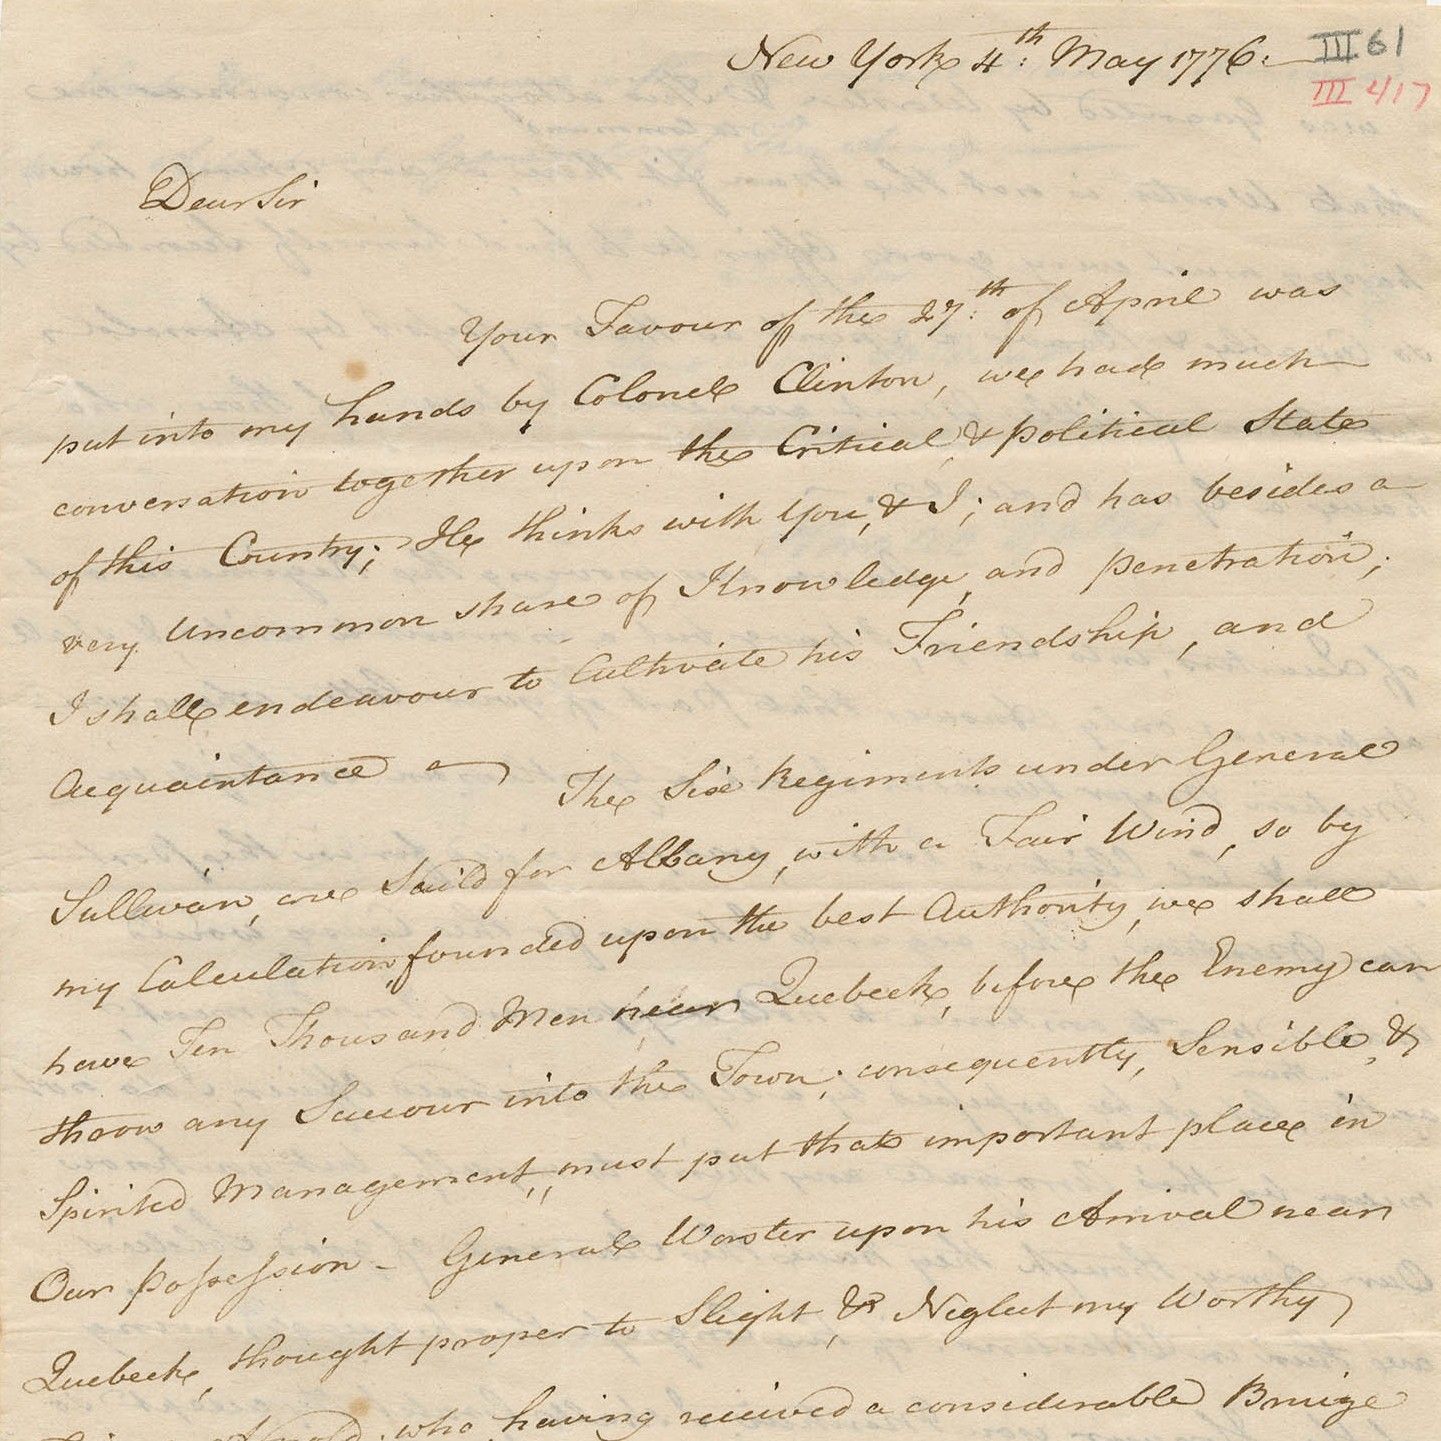 New York 4th: May 1776:
III 61
III 417
Dear Sir
Your Favour of the 27:th of April was
put into my hands by Colonel Clinton, we had much
conversation together upon the Critical, & political State
of this Country; He thinks with You, & I; and has besides a
very Uncommon share of Knowledge, and penetration;
I shall endeavour to Cultivate his Friendship, and
Acquaintance — The Six Regiments under General
Sullivan, are Saild for Albany, with a Fair Wind, so by
my Calculation, founded upon the best Authority, we shall
have Ten Thousand Men near Quebeck, before the Enemy can
throw any Succour into the Town; consequently, Sensible, &
Spirited Management, must put that important place in
Our possession - General Worster upon his Arrival near
Quebeck, thought proper to Slight, & Neglect my Worthy
Arnold, who having received a considerable Bruize